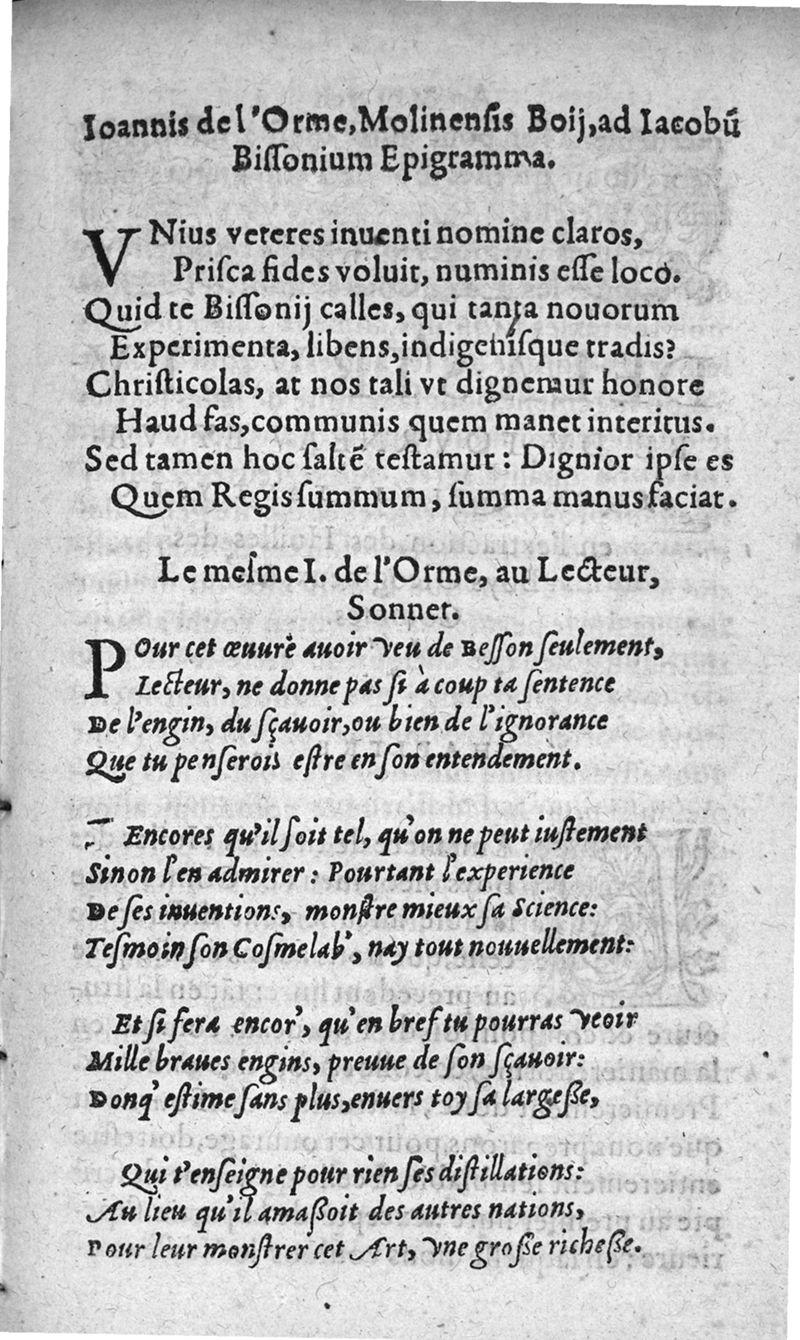 Ioannis de l'Orme, Molinensis Boij, ad Iacobũ
Biſſonium Epigramma.
VNius veteres inuenti nomine claros,
Priſca fides voluit, numinis eſſe loco.
Quid te Biſſonij calles, qui tanta nouorum
Experimenta, libens, indigeniſque tradis?
Chriſticolas, at nos tali vt dignemur honore
Haud fas, communis quem manet interitus.
Sed tamen hoc ſaltẽ teſtamur: Dignior ipſe es
Quem Regis ſummum, ſumma manus faciat.
Le meſme I. de l'Orme, au Lecteur,
Sonnet.
POur cet œuure auoir veu de Beſſon ſeulement,
Lecteur, ne donne pas ſi à coup ta ſentence
De l'engin, du ſçauoir, ou bien de l'ignorance
Que tu penſerois eſtre en ſon entendement.
Encores qu'il ſoit tel, qu'on ne peut iuſtement
Sinon l'en admirer: Pourtant l'experience
De ſes inuentions, monſtre mieux ſa Science:
Teſmoin ſon Coſmelab', nay tout nouuellement:
Et ſi fera encor', qu'en bref tu pourras veoir
Mille braues engins, preuue de ſon ſçauoir:
Donq' eſtime ſans plus, enuers toy ſa largeſſe,
Qui t'enſeigne pour rien ſes diſtillations:
Au lieu qu'il amaſſoit des autres nations,
Pour leur monſtrer cet Art, vne groſſe richeſſe.